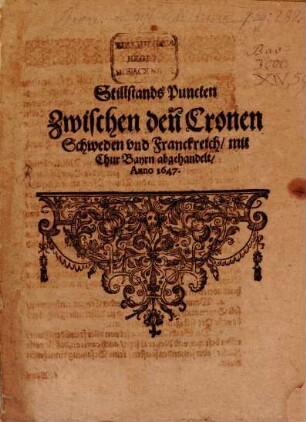 BIBLIOTHECA
REGIA
MONACENSIS
Bav.
3000
XIV
Stillstands Puncten
Zwischen deñ Cronen
Schweden vnd Franckreich/ mit
Chur Bayrn abgehandelt/
Anno 1647.